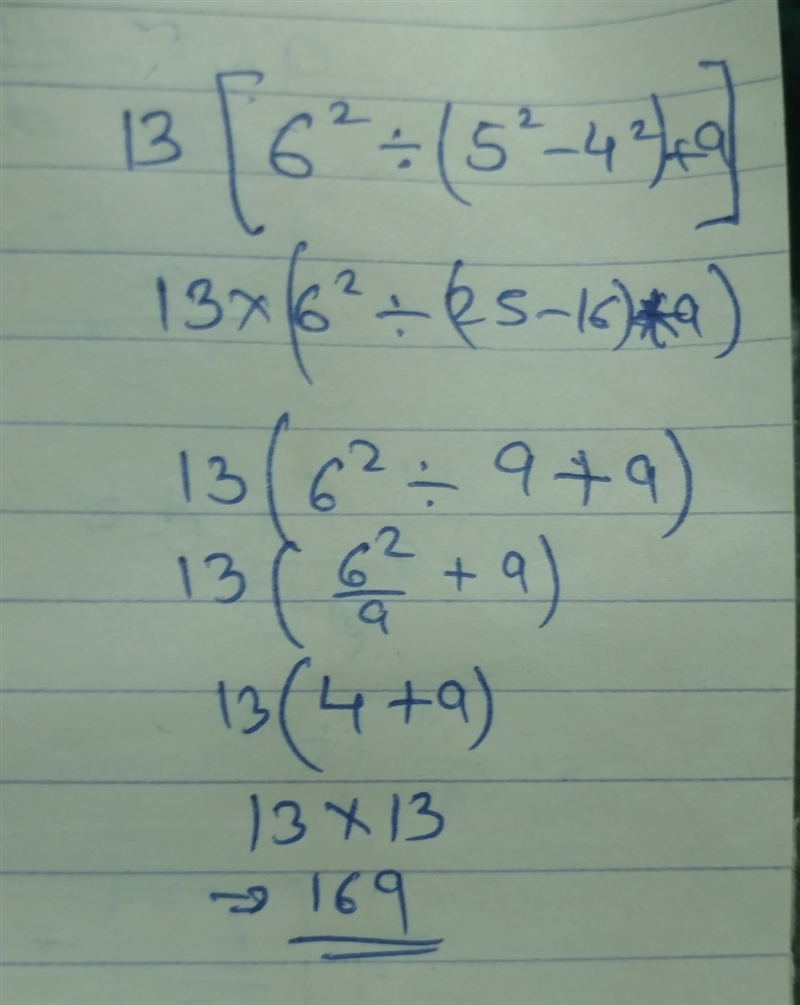 13 [6² ÷ (5² - 4²) + 9]
13 × (6² ÷ (25 - 16) + 9)
13 (6² ÷ 9 + 9)
13 (6²/9 + 9)
13 (4 + 9)
13 × 13
→ 169